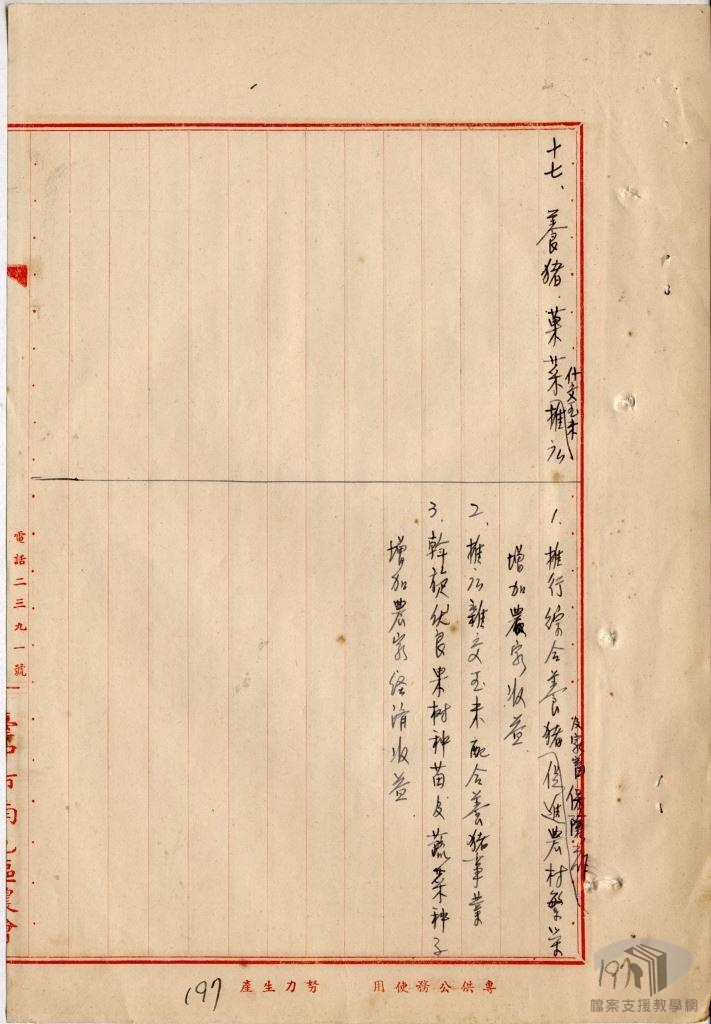 十七、養猪.菓菜推広
什交玉米
1.推行綜合養猪促進農村繁栄
及家畜保險工作
增加農家收益
2.推広雜交玉米配合養猪事業
3.斡旋优良果树种苗及蔬菜种子
增加農家経済收益
電話二三九一號
專供公務使用
努力生產
197
檔案支援教學網